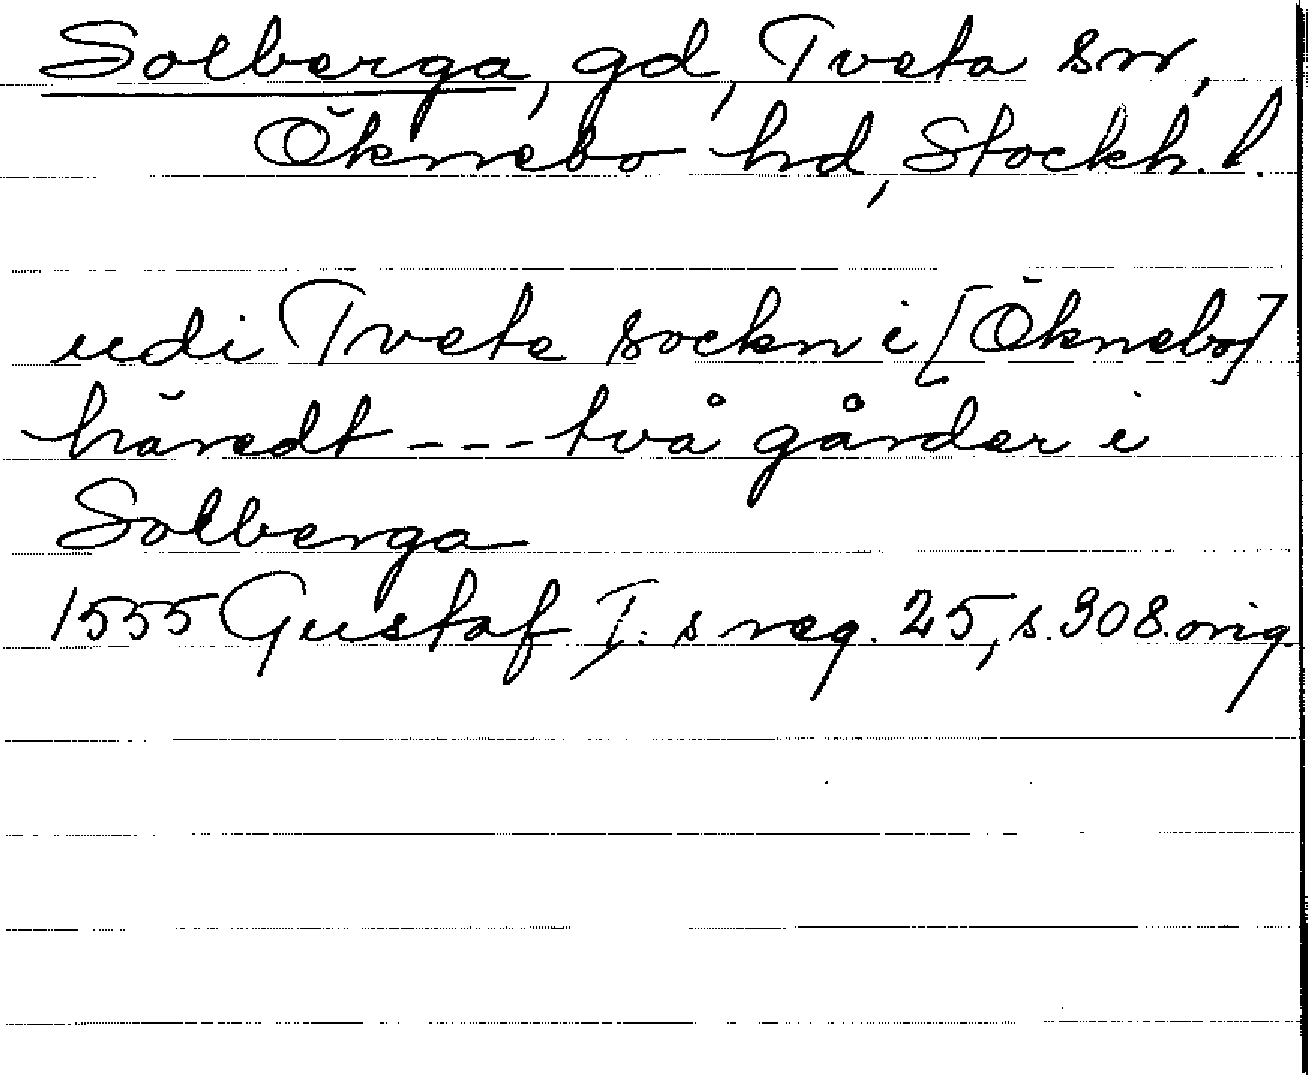 Solberga, gd, Tveta sn,
Öknebo hd, Stockh. l.
udi Tveta sockn i [Öknebo]
häredt --- två gårder i
Solberga
1555 Gustaf I:s reg. 25, s. 308. orig.